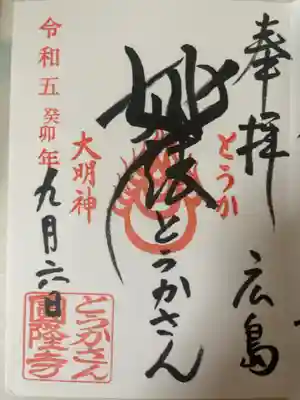 奉拝 広島
とうか
妙法 とうかさん
大明神
令和五癸卯年九月六日
とうかさん
圓隆寺